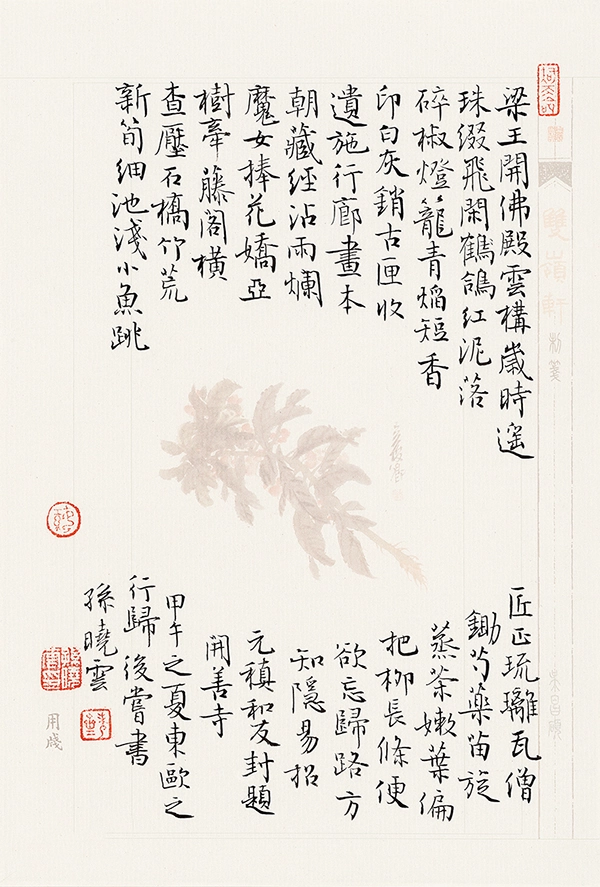 梁王開佛殿雲構歲時遥
珠缀飛閑鶴鴿红泥落
碎椒燈籠青焰短香
印白灰銷古匣收
遺施行廊畫本
朝藏经沾雨爛
魔女捧花嬌亞
樹牽藤閣横
查壓石橋竹荒
新筍细池淺小魚跳
匠正琉璃瓦僧
鋤芍藥苗旋
蒸茶嫩葉偏
把柳長條便
欲忘歸路方
知隱易招
元稹和友封題
開善寺
甲午之夏東歐之
行歸後嘗書
孫曉雲
雙嶺軒
用牋